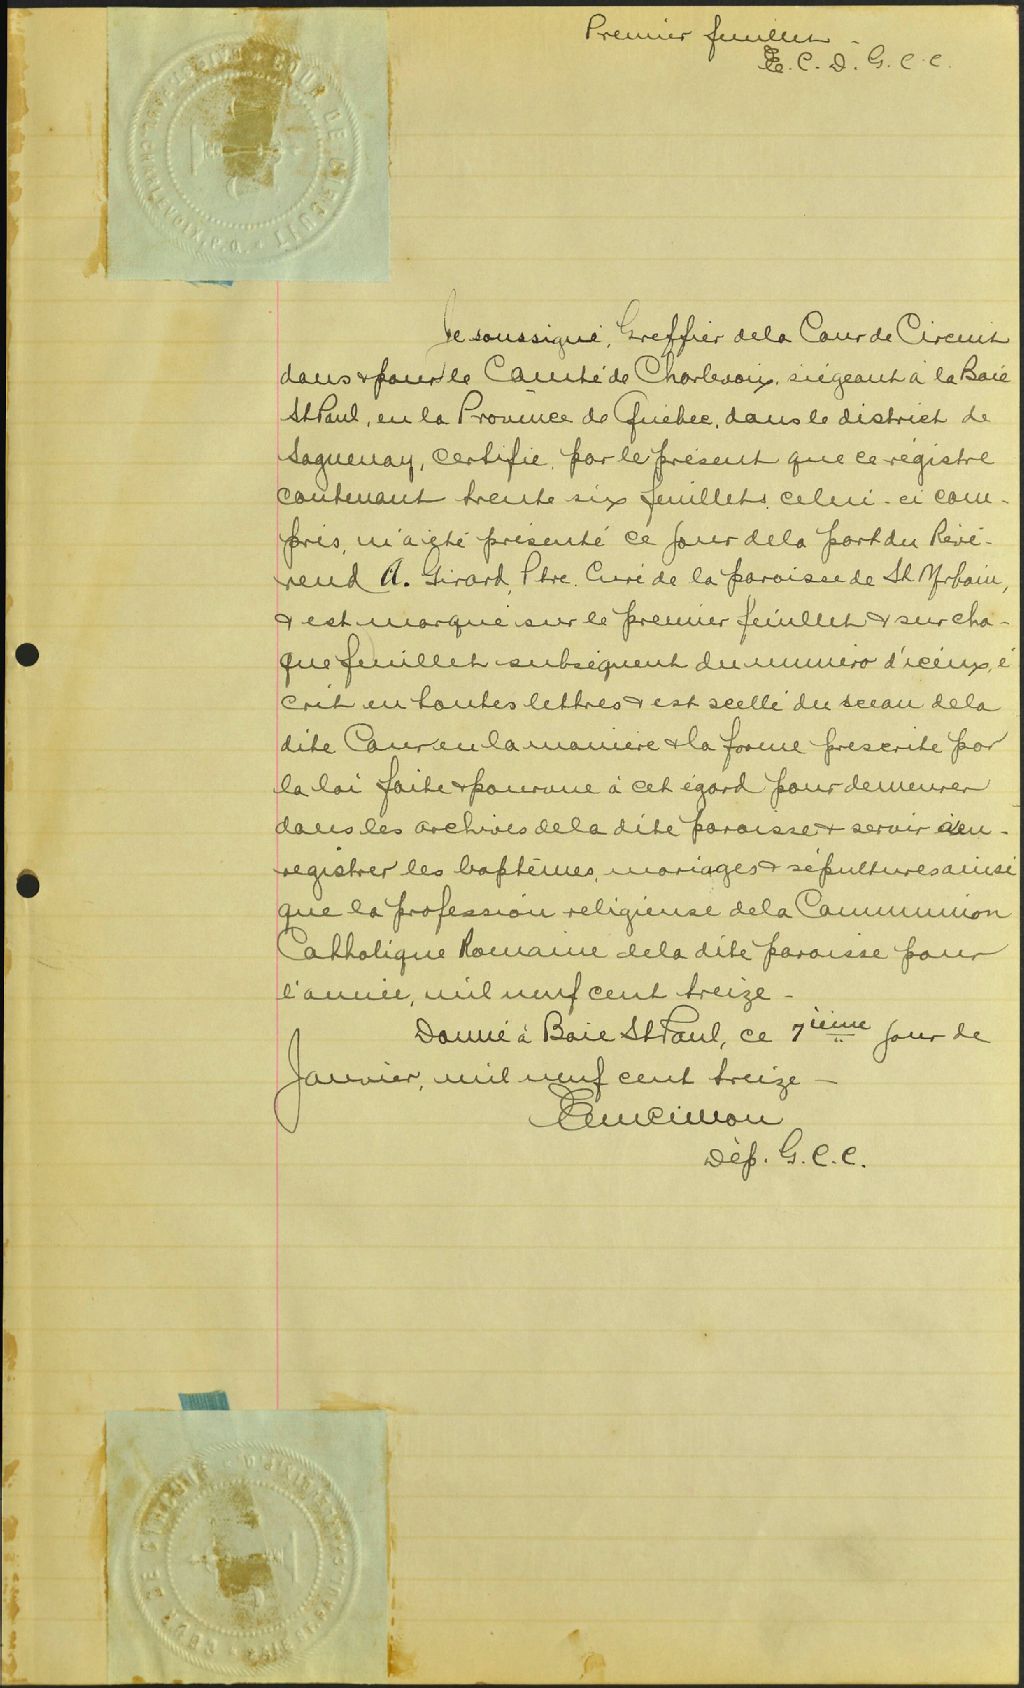 Premier feuillet -
E. C. D. G. C. C.
COUR DE CIRCUIT
CHARLEVOIX, P.Q.
Je soussigné, Greffier de la Cour de Circuit
dans & pour le Comté de Charlevoix, siégeant à la Baie
St Paul, en la Province de Québec, dans le district de
Saguenay, certifie par le présent que ce régistre
contenant trente six feuillets, celui-ci com-
pris, m'a été présenté ce jour de la part du Révé-
rend A. Girard, Ptre. Curé de la paroisse de St Urbain,
& est marqué sur le premier feuillet & sur cha-
que feuillet subséquent du numéro d'iceux, é
crit en toutes lettres & est scellé du sceau de la
dite Cour en la manière & la forme prescrite par
la loi faite & pourvue à cet égard pour demeurer
dans les archives de la dite paroisse & servir à en-
registrer les baptêmes, mariages & sépultures ainsi
que la profession religieuse de la Communion
Catholique Romaine de la dite paroisse pour
l'année, mil neuf cent treize -
Donné à Baie St Paul, ce 7ième jour de
Janvier, mil neuf cent treize -
Dép. G. C. C.
COUR DE CIRCUIT